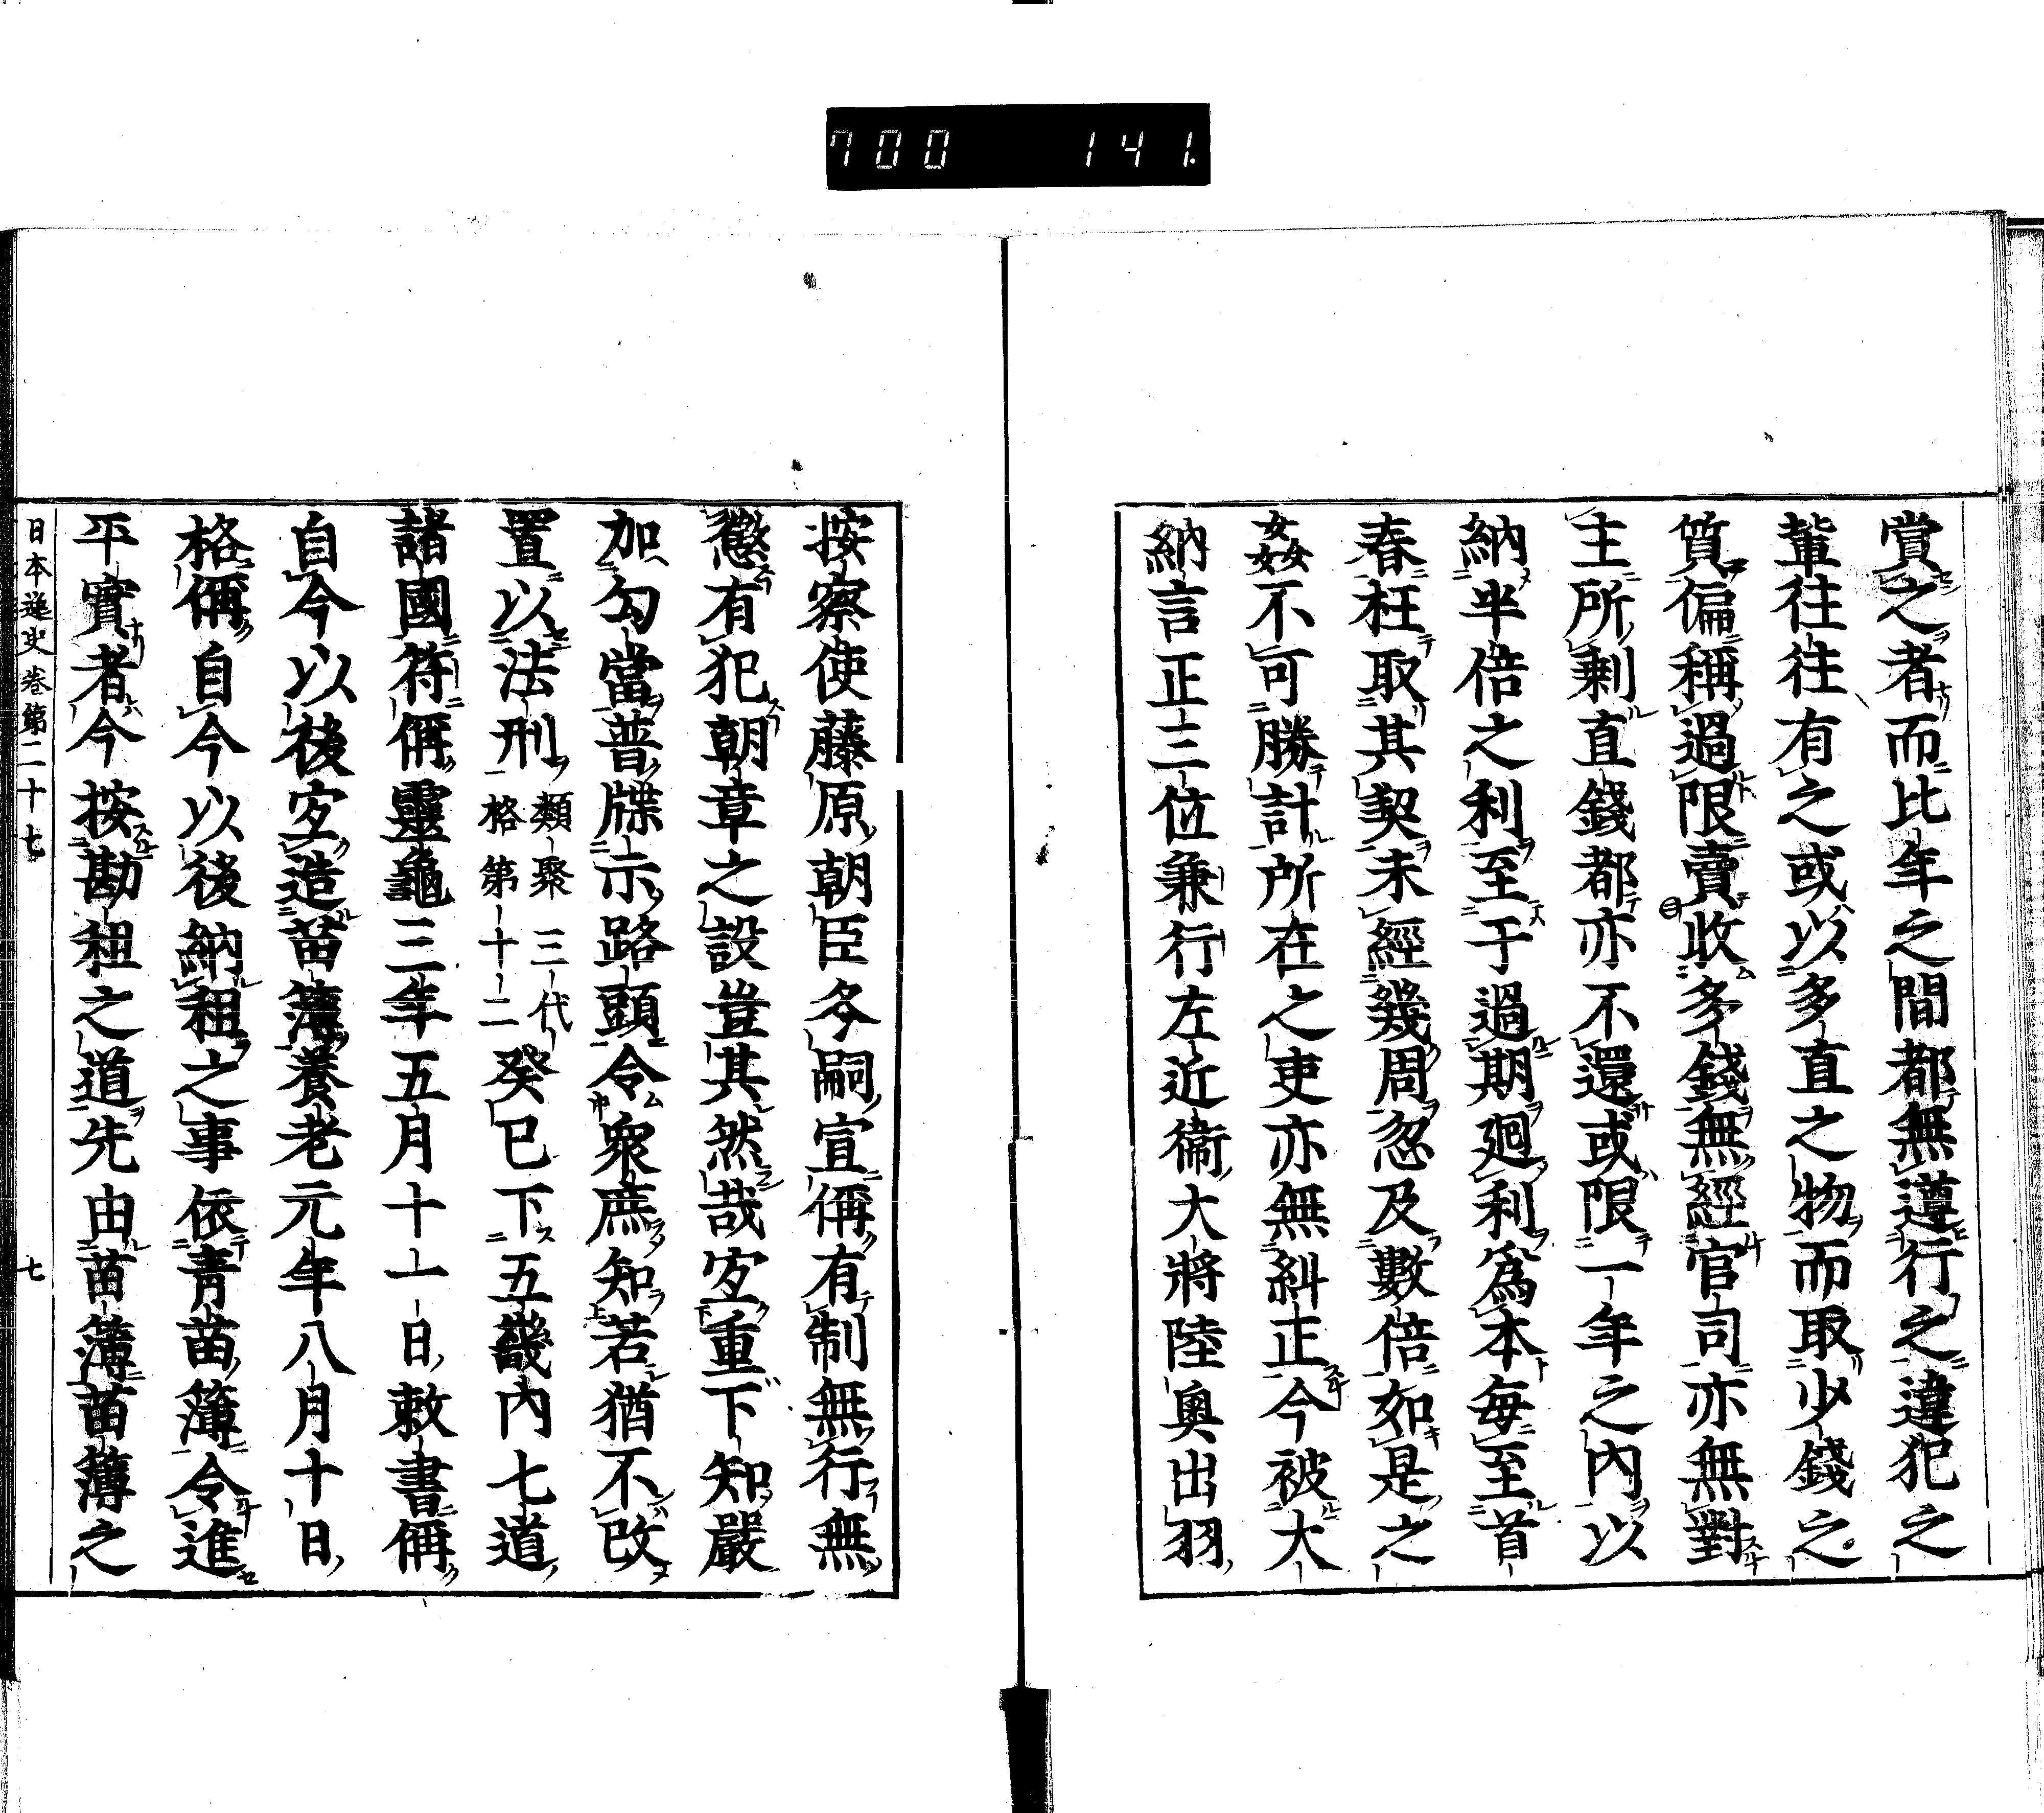 700 141.
賞之者而比年之間都無遵行之違犯之
輩往往有之或以多直之物而取少錢之
質偏稱過限賣收多錢無經官司亦無對
主所剩直錢都亦不還或限一年之內以
納半倍之利至于過期廻利爲本每至首
春枉取其契未經幾周忽及數倍如是之
姦不可勝計所在之吏亦無糾正今被大
納言正三位兼行左近衞大將陸奧出羽
按察使藤原朝臣冬嗣宣偁有制無行無
懲有犯朝章之設豈其然哉宜重下知嚴
加勾當普牒示路頭令衆庶知若猶不改
置以法刑類聚三代格第十二癸巳下五畿內七道
諸國符偁靈龜三年五月十一日敕書偁
自今以後宜造苗簿養老元年八月十日
格偁自今以後納租之事依靑苗簿令進
平實者今按勘租之道先由苗簿苗簿之
日本逸史卷第二十七 七